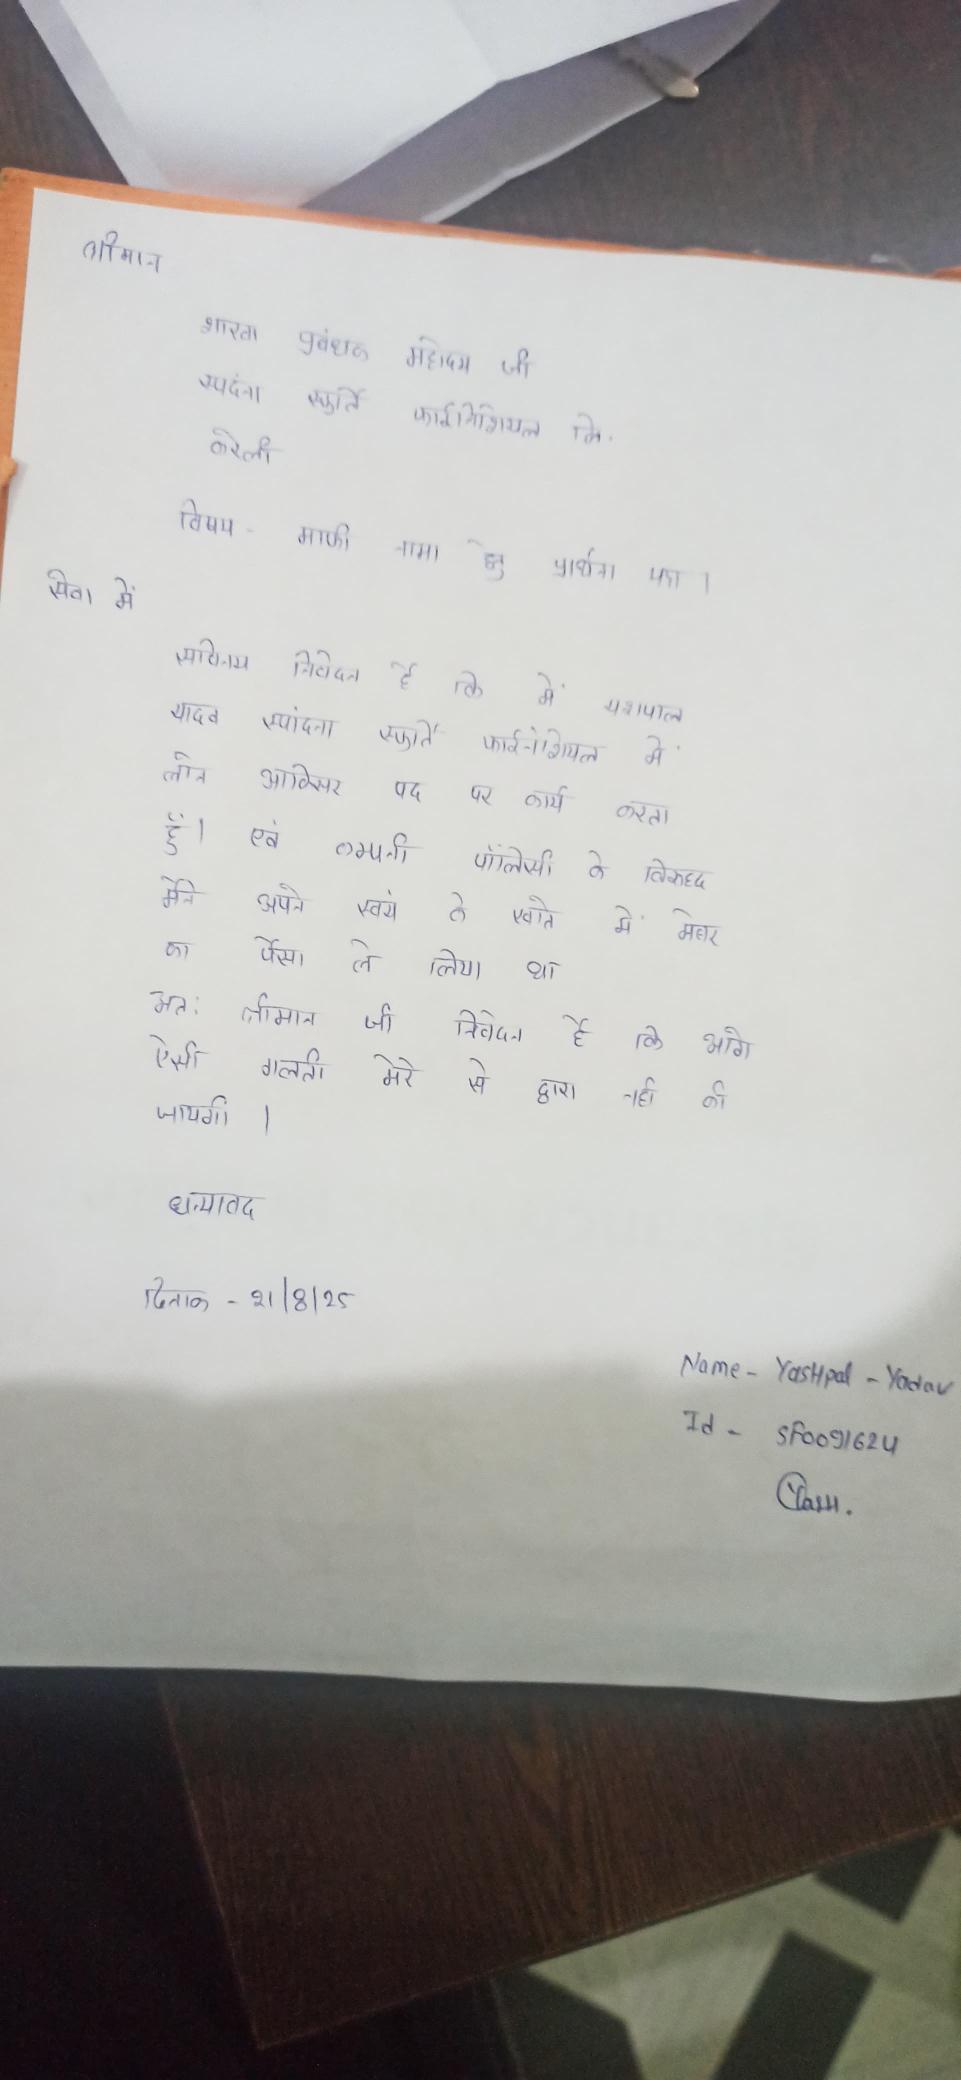 श्रीमान
शाखा प्रबंधक महोदय जी
स्पदंना स्फूर्ति फाईनेंशियल लि.
करेली
विषय - माफी नामा हेतु प्रार्थना पत्र ।
सेवा में
सविनय निवेदन है कि में यशपाल
यादव स्पांदना स्फूर्ति फाईनेंशियल में
लोन आफिसर पद पर कार्य करता
हूँ। एवं कम्पनी पॉलिसी के विरूद्द
मेंने अपने स्वयं के खाते में मेंबर
का पैसा ले लिया था
अतः श्रीमान जी निवेदन है कि आगे
ऐसी गलती मेरे से द्वारा नहीं की
जायगी ।
धन्यावद
दिनाक - 21/8/25
Name - YasHpal - Yadav
Id - SF0091624
Yash.